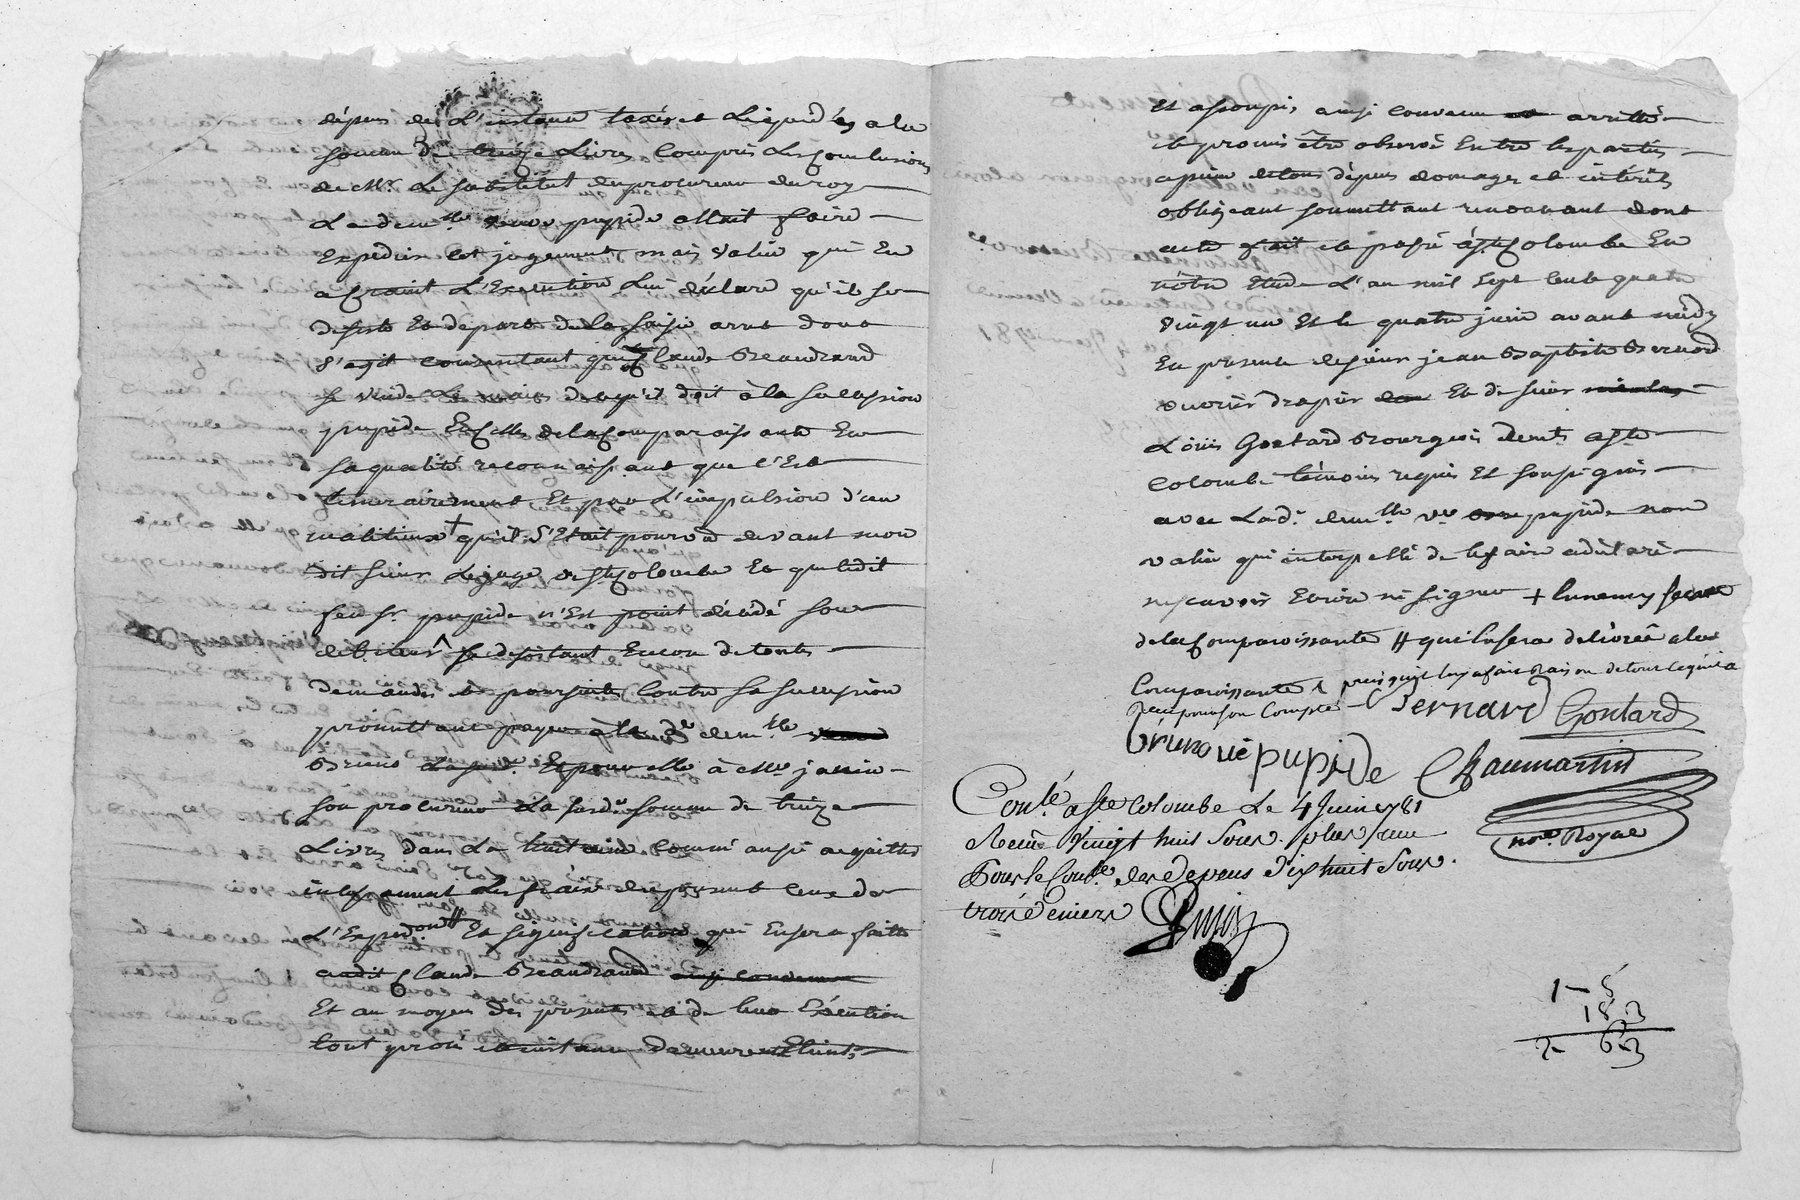 dépens de L'instance taxés et Liquidés a la
somme de treize Livres compris Les Conclusions
de Mr. Le substitut du procureur du roy
La dem.lle veuve pupide allait faire
Expedier Cet jugement, mais Valin qui En
a craint L'Execution Lui déclare qu'il se
desiste Et départ de la saisie arret dont
s'agit consentant que Claude Beaudrand
se vuide Les mains de ce qu'il doit à la succession
pupide En Celles de la Comparaissante En
sa qualité reconnaissant que c'Est
temerairement Et par L'impulsion d'un
malitieux + qu'il s'Etait pourvu devant mon
dit sieur Le juge de Ste Colombe Et que ledit
feu Sr. pupide n'Est point décédé son
debiteur ^ se desistant Encore de toutes
demandes et poursuites Contre sa succession
promettant payer à la de. dem.lle
Brieno La pd. Et pour Elle à Me janin
son procureur La susde. somme de treize
Livres dans La huitaine comme aussi acquitter
intessament Les frais du present ceux de
L'Exped.on # Et signification qui En sera faitte
audit Claude Beaudrand ainsi convenu
Et au moyen des presentes et de leur Exécution
tout procès et instance demeurent Eteints
Et assoupis, ainsi convenu arretté
et promis être observé Entre les parties
a peine de tous dépens domages et interêts
obligeant soumettant renoncant dont
acte fait et passé à Ste Colombe En
nôtre Etude L'an mil sept cent quatre
vingt un Et le quatre juin avant midy
En presence de sieur jean Baptiste Bernard
ouvrier drapier Et de sieur
Loüis Gontard Bourgeois dem.ts à Ste
Colombe témoins requis Et soussignés
avec La d. dem.lle ve. pupide non
valin qui interpellé de le faire a déclaré
ne scavoir Ecrire ni signer + Ennemy secret
de la Comparoissante # qui lui sera delivrée a la
Comparoissante ^ puisqu'il luy a fait Raison de tout ce qu'il a
reçu pour son Compte
Bernard Gontard
bruno ve pupide Chaumartin
not.re Royal
Con.lé a Ste Colombe Le 4 Juin 1781
Reçu Vingt huit Sous. plus
Pour le Con.le des depens dix huit Sous
trois Deniers
1 - 8
18 - 3
2 - 6 - 3